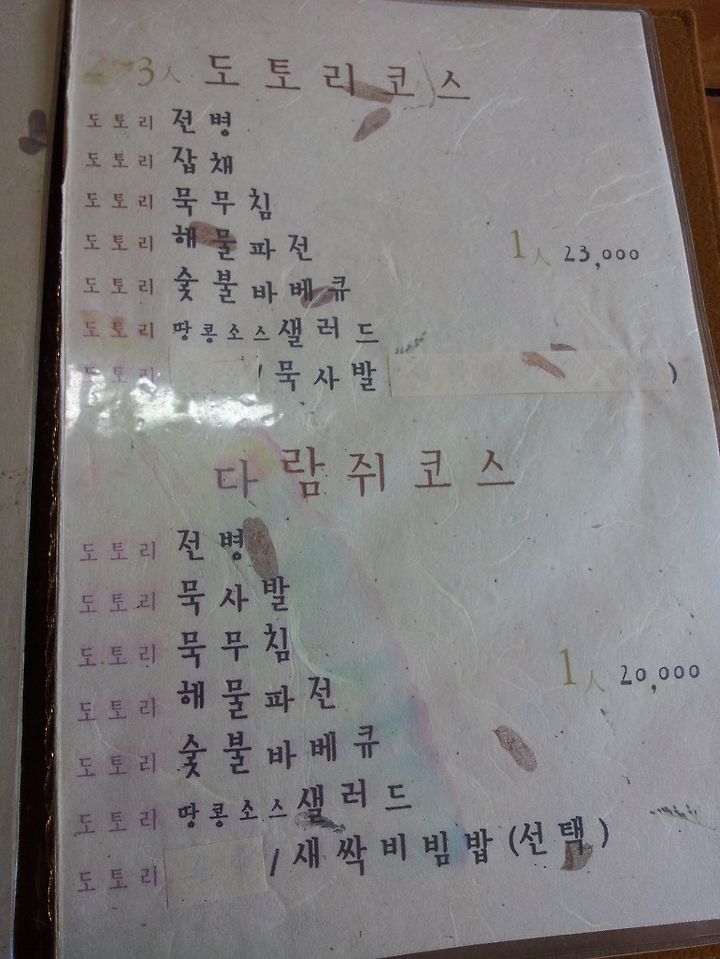 2~3人 도토리코스
도토리 전병
도토리 잡채
도토리 묵무침
도토리 해물파전
1人 23,000
도토리 숯불바베큐
도토리 땅콩소스샐러드
도토리 /묵사발 )
다람쥐코스
도토리 전병
도토리 묵사발
도토리 묵무침
도토리 해물파전
1人 20,000
도토리 숯불바베큐
도토리 땅콩소스샐러드
도토리 /새싹비빔밥(선택)